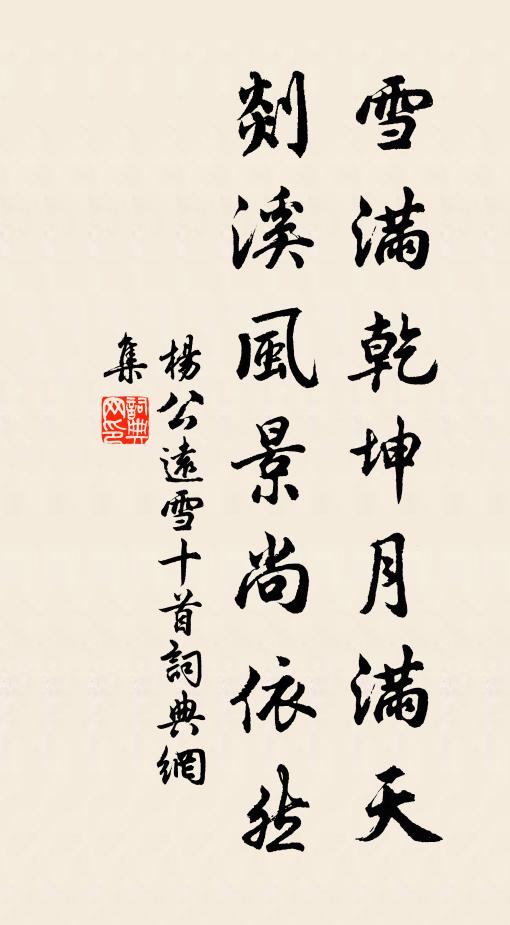 雪滿乾坤月滿天
剡溪風景尚依然
楊公遠雪十首詞典網
集
詞典
网印